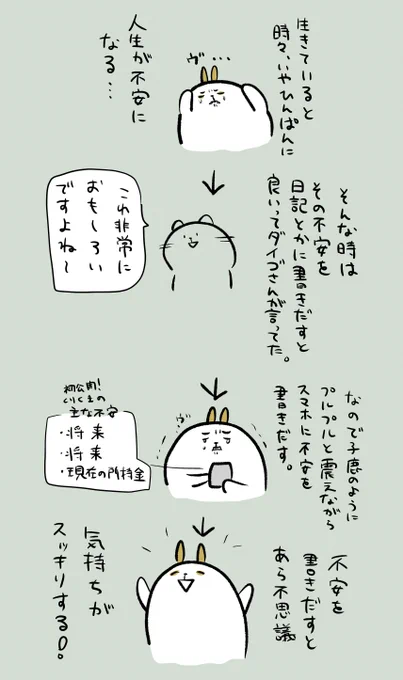 生きていると
時々、いやひんぱんに
人生が不安に
なる…
ヴ…
そんな時は
その不安を
日記とかに書きだすと
良いってダイゴさんが言ってた。
これ非常に
おもしろい
ですよね～
なので子鹿のように
プルプルと震えながら
スマホに不安を
書きだす。
ヴ…
初公開!
くりくまの
主な不安
・将来
・将来
・現在の所持金
不安を
書きだすと
あら不思議
気持ちが
スッキリする○!